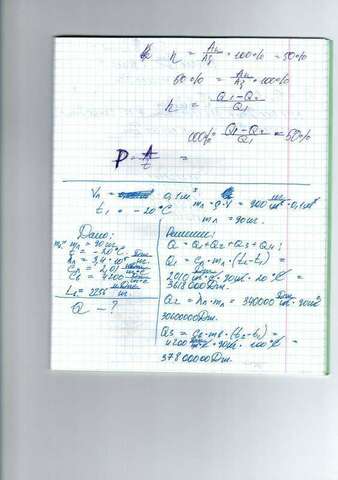 η = Aп/Aз · 100% = 50%
50% = Aп/Aз · 100%
η = Q1 – Q2 / Q1
100% Q1 – Q2 / Q1 = 50%
P = A/t =
Vл = 0,1 м³
mл = ρ · V = 900 кг/м³ · 0,1 м³
t1 = – 20 °C
mл = 90 кг.
Дано:
mл = 90 кг
t = – 20 °C
λл = 3,4 · 10⁵ Дж/кг
Cл = 2,01
Cв = 4200 Дж/кг·°C
L = 2256
Q – ?
Решение:
Q = Q1 + Q2 + Q3 + Q4 ;
Q1 = Cл · mл · (t2 – t1) =
2010 Дж/кг·°C · 90 кг · 20 °C =
3618000 Дж.
Q2 = λл · mл = 340000 Дж/кг · 90 кг
30600000 Дж.
Q3 = Cв · mв · (t2 – t1) =
4200 Дж/кг·°C · 90 кг · 100 °C =
37800000 Дж.